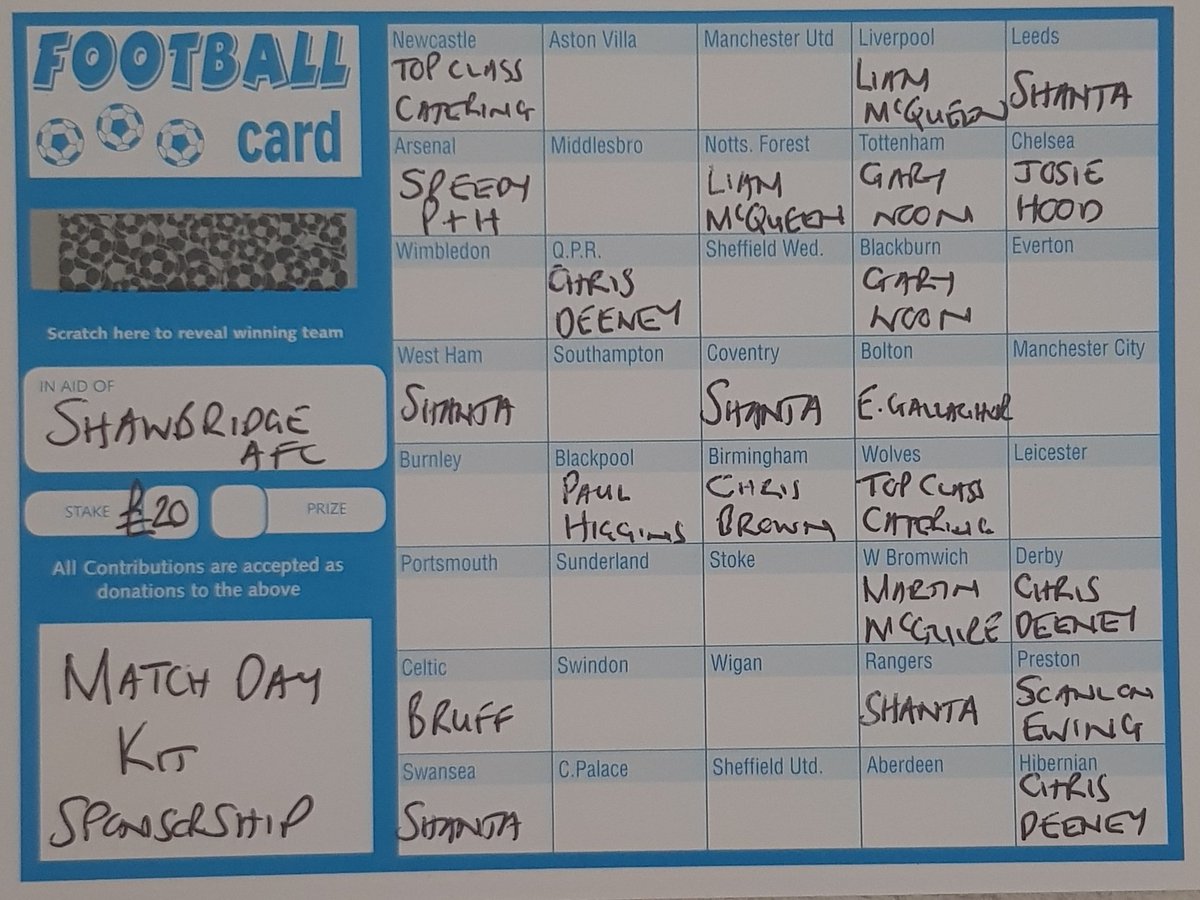 FOOTBALL
card
Scratch here to reveal winning team
IN AID OF
SHAWBRIDGE
AFC
STAKE £20
PRIZE
All Contributions are accepted as
donations to the above
MATCH DAY
KIT
SPONSORSHIP
Newcastle
TOP CLASS
CATERING
Aston Villa
Manchester Utd
Liverpool
LIAM
McQUEEN
Leeds
SHANTA
Arsenal
SPEEDY
P+H
Middlesbro
Notts. Forest
LIAM
McQUEEN
Tottenham
GARY
NOON
Chelsea
JOSIE
HOOD
Wimbledon
Q.P.R.
CHRIS
DEENEY
Sheffield Wed.
Blackburn
GARY
NOON
Everton
West Ham
SHANTA
Southampton
Coventry
SHANTA
Bolton
E. GALLAGHER
Manchester City
Burnley
Blackpool
PAUL
HIGGINS
Birmingham
CHRIS
BROWN
Wolves
TOP CLASS
CATERING
Leicester
Portsmouth
Sunderland
Stoke
W Bromwich
MARTIN
McGUIRE
Derby
CHRIS
DEENEY
Celtic
BRUFF
Swindon
Wigan
Rangers
SHANTA
Preston
SCANLON
EWING
Swansea
SHANTA
C.Palace
Sheffield Utd.
Aberdeen
Hibernian
CHRIS
DEENEY